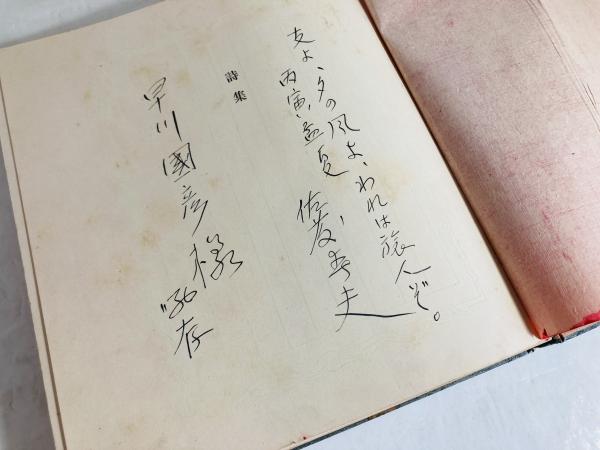 友よ、夕の風よ、われは旅人ぞ。
丙寅孟夏
佐藤春夫
詩集
早川國彦様
恵存